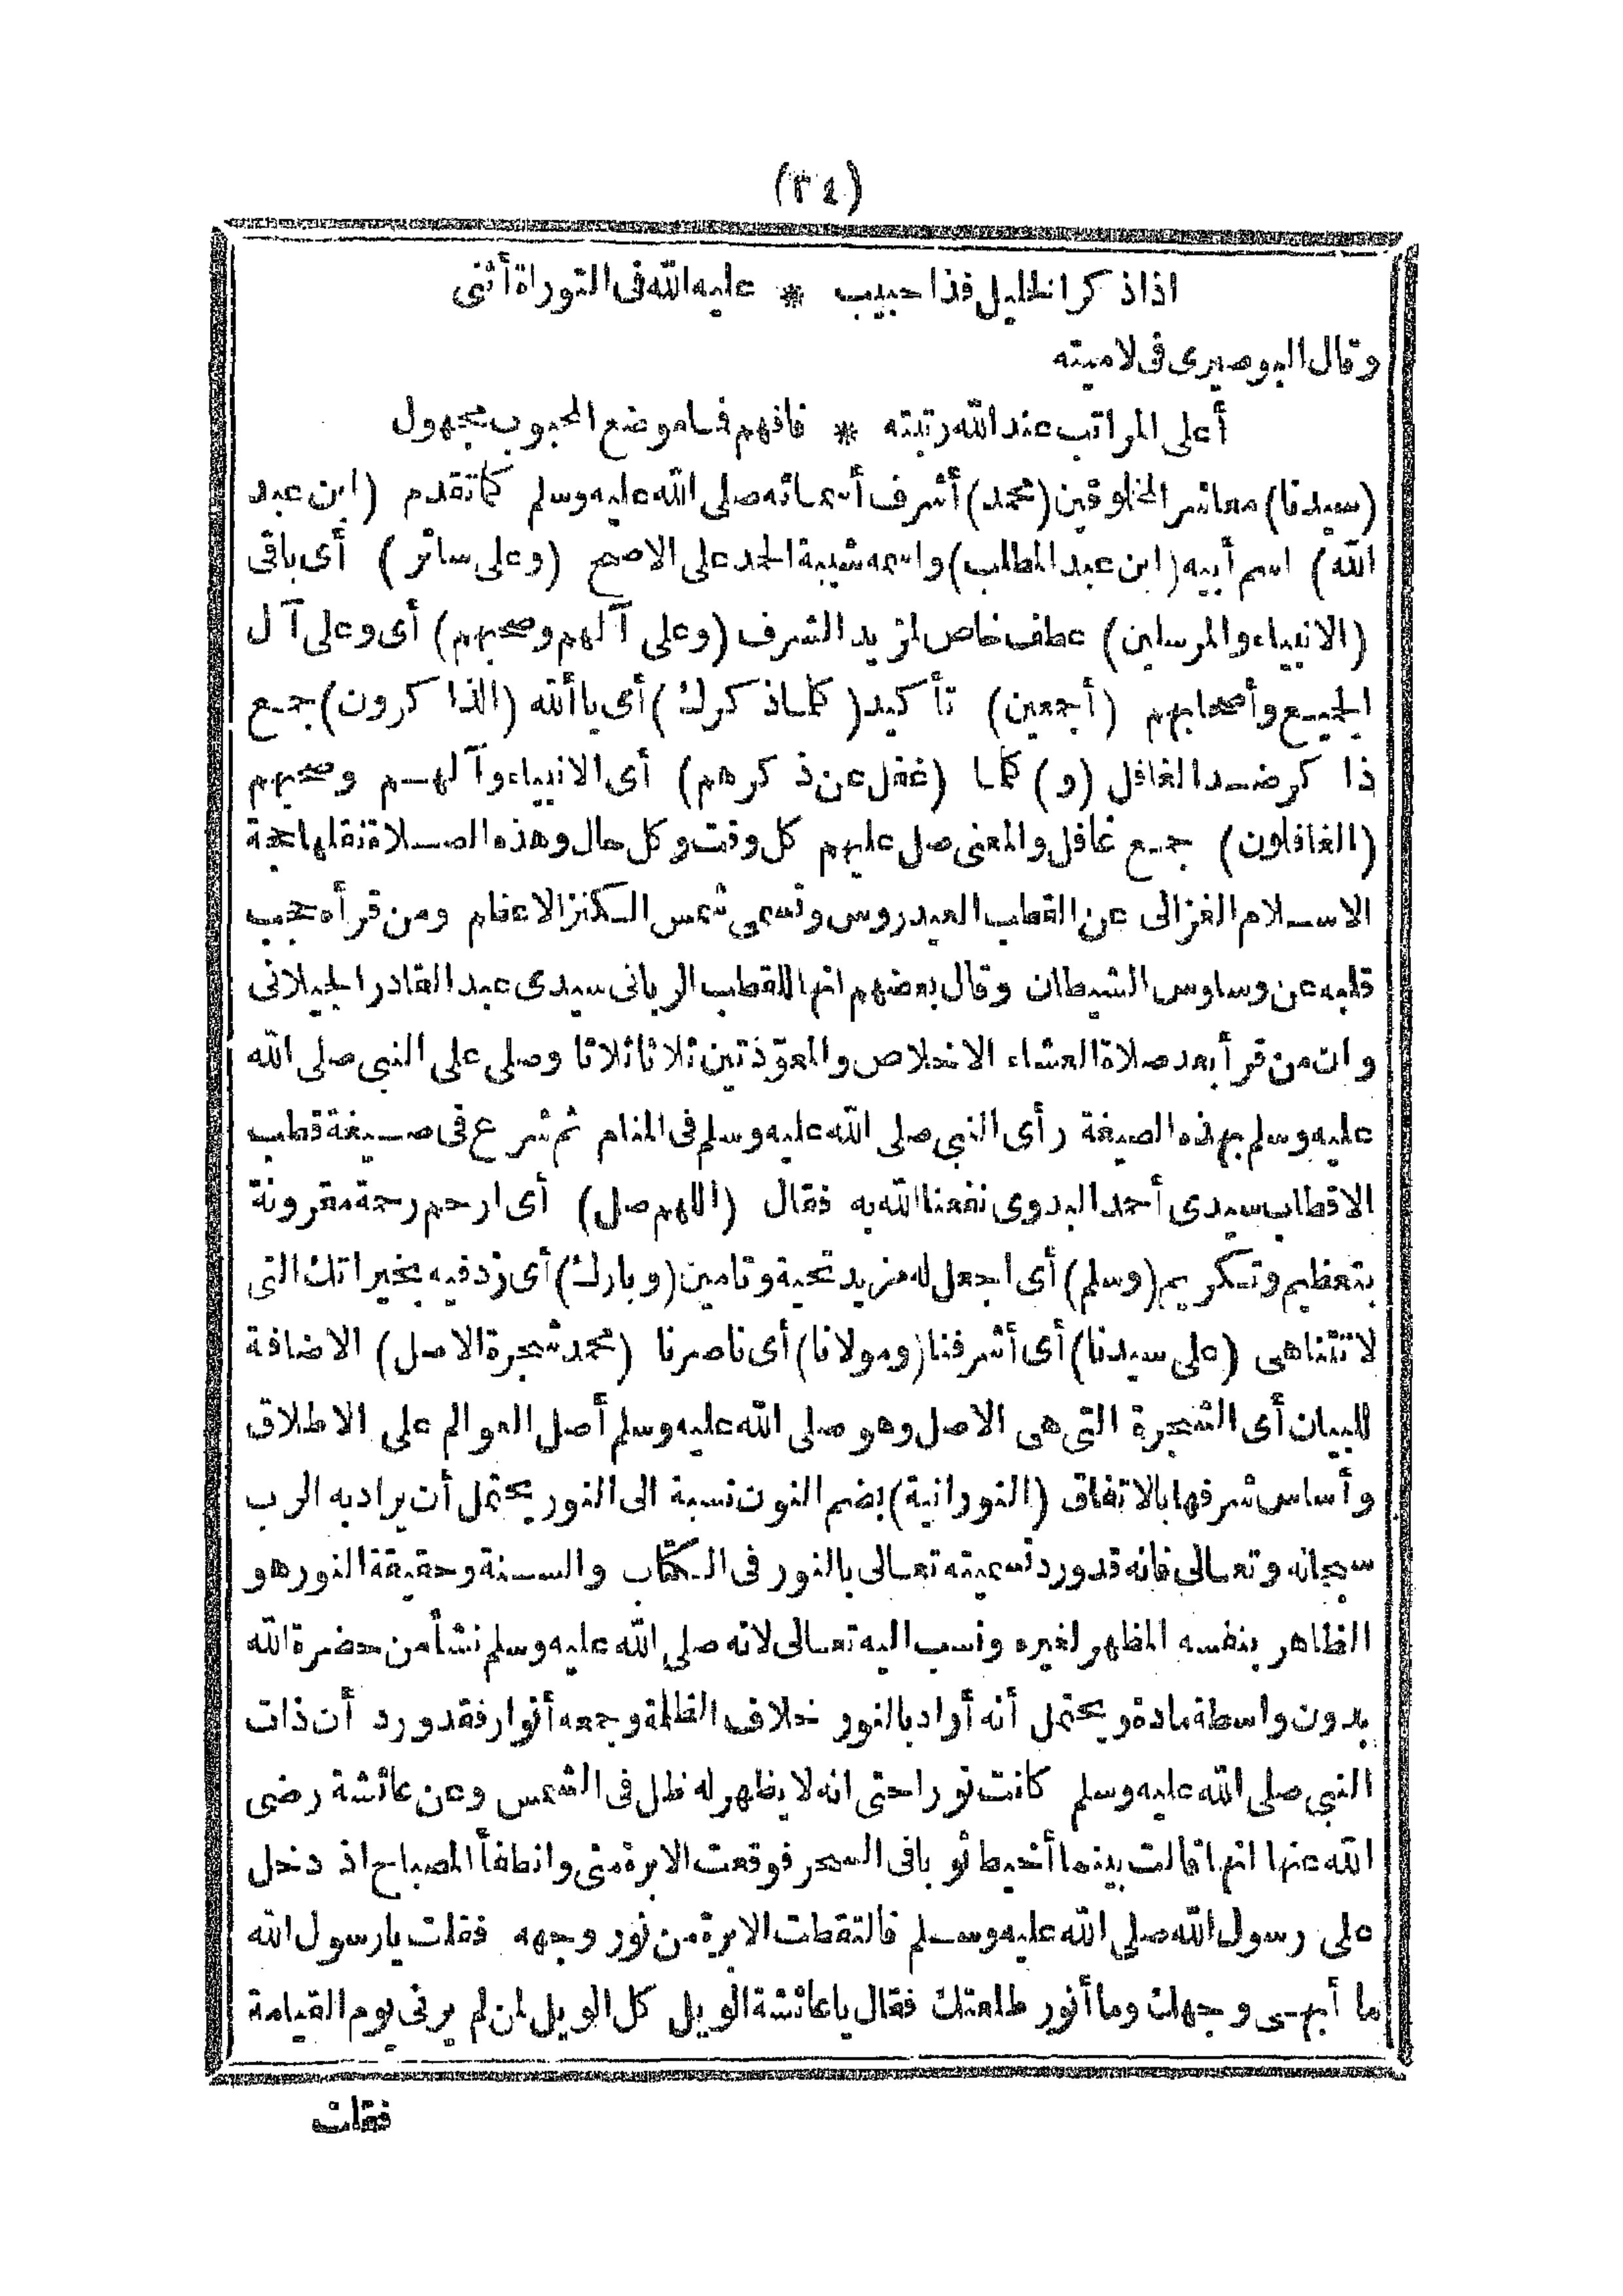 (٣٤)
اذا ذكر الخليل فذا حبيب * عليه الله في التوراة أثنى
وقال البوصيرى فى لاميته
أعلى المراتب عند الله رتبته * فافهم فما موضع المحبوب مجهول
(سيدنا) معاشر المخلوقين (محمد) أشرف أسمائه صلى الله عليه وسلم كما تقدم (ابن عبد
الله) اسم أبيه (ابن عبد المطلب) واسمه شيبة الحمد على الاصح (وعلى سائر) أى باقى
(الانبياء والمرسلين) عطف خاص لمزيد الشرف (وعلى آلهم وصحبهم) أى وعلى آل
الجميع وأصحابهم (أجمعين) تأكيد (كلما ذكرك) أى يا ألله (الذاكرون) جمع
ذاكر ضد الغافل (و) كلما (غفل عن ذكرهم) أى الانبياء وآلهم وصحبهم
(الغافلون) جمع غافل والمعنى صل عليهم كل وقت وكل حال وهذه الصلاة نقلها حجة
الاسلام الغزالى عن القطب العيدروس وتسمى شمس الكنز الاعظم ومن قرأه حجب
قلبه عن وساوس الشيطان وقال بعضهم انها للقطب الربانى سيدى عبد القادر الجيلانى
وان من قرأ بعد صلاة العشاء الاخلاص والمعوّذتين ثلاثا ثلاثا وصلى على النبى صلى الله
عليه وسلم بهذه الصيغة رأى النبى صلى الله عليه وسلم فى المنام ثم شرع فى صيغة قطب
الاقطاب سيدى أحمد البدوى نفعنا الله به فقال (اللهم صل) أى ارحم رحمة مقرونة
بتعظيم وتكريم (وسلم) أى اجعل له مزيد تحية وتامين (وبارك) أى زد فيه بخيراتك التى
لا تتناهى (على سيدنا) أى أشرفنا (ومولانا) أى ناصرنا (محمد شجرة الاصل) الاضافة
للبيان أى الشجرة التى هى الاصل وهو صلى الله عليه وسلم أصل العوالم على الاطلاق
وأساس شرفها بالاتفاق (النورانية) بضم النون نسبة الى النور يحتمل أن يراد به الرب
سبحانه وتعالى فانه قد ورد تسميته تعالى بالنور فى الكتاب والسنة وحقيقة النور هو
الظاهر بنفسه المظهر لغيره ونسب اليه تعالى لانه صلى الله عليه وسلم نشأ من حضرة الله
بدون واسطة مادة ويحتمل أنه أراد بالنور خلاف الظلمة وجمعه أنوار فقد ورد أن ذات
النبى صلى الله عليه وسلم كانت نورا حتى انه لا يظهر له ظل فى الشمس وعن عائشة رضى
الله عنها انها قالت بينما أخيط ثوبا فى السحر فوقعت الابرة منى وانطفأ المصباح اذ دخل
على رسول الله صلى الله عليه وسلم فالتقطت الابرة من نور وجهه فقلت يا رسول الله
ما أبهى وجهك وما أنور طلعتك فقال يا عائشة الويل كل الويل لمن لم يرنى يوم القيامة
فقلت